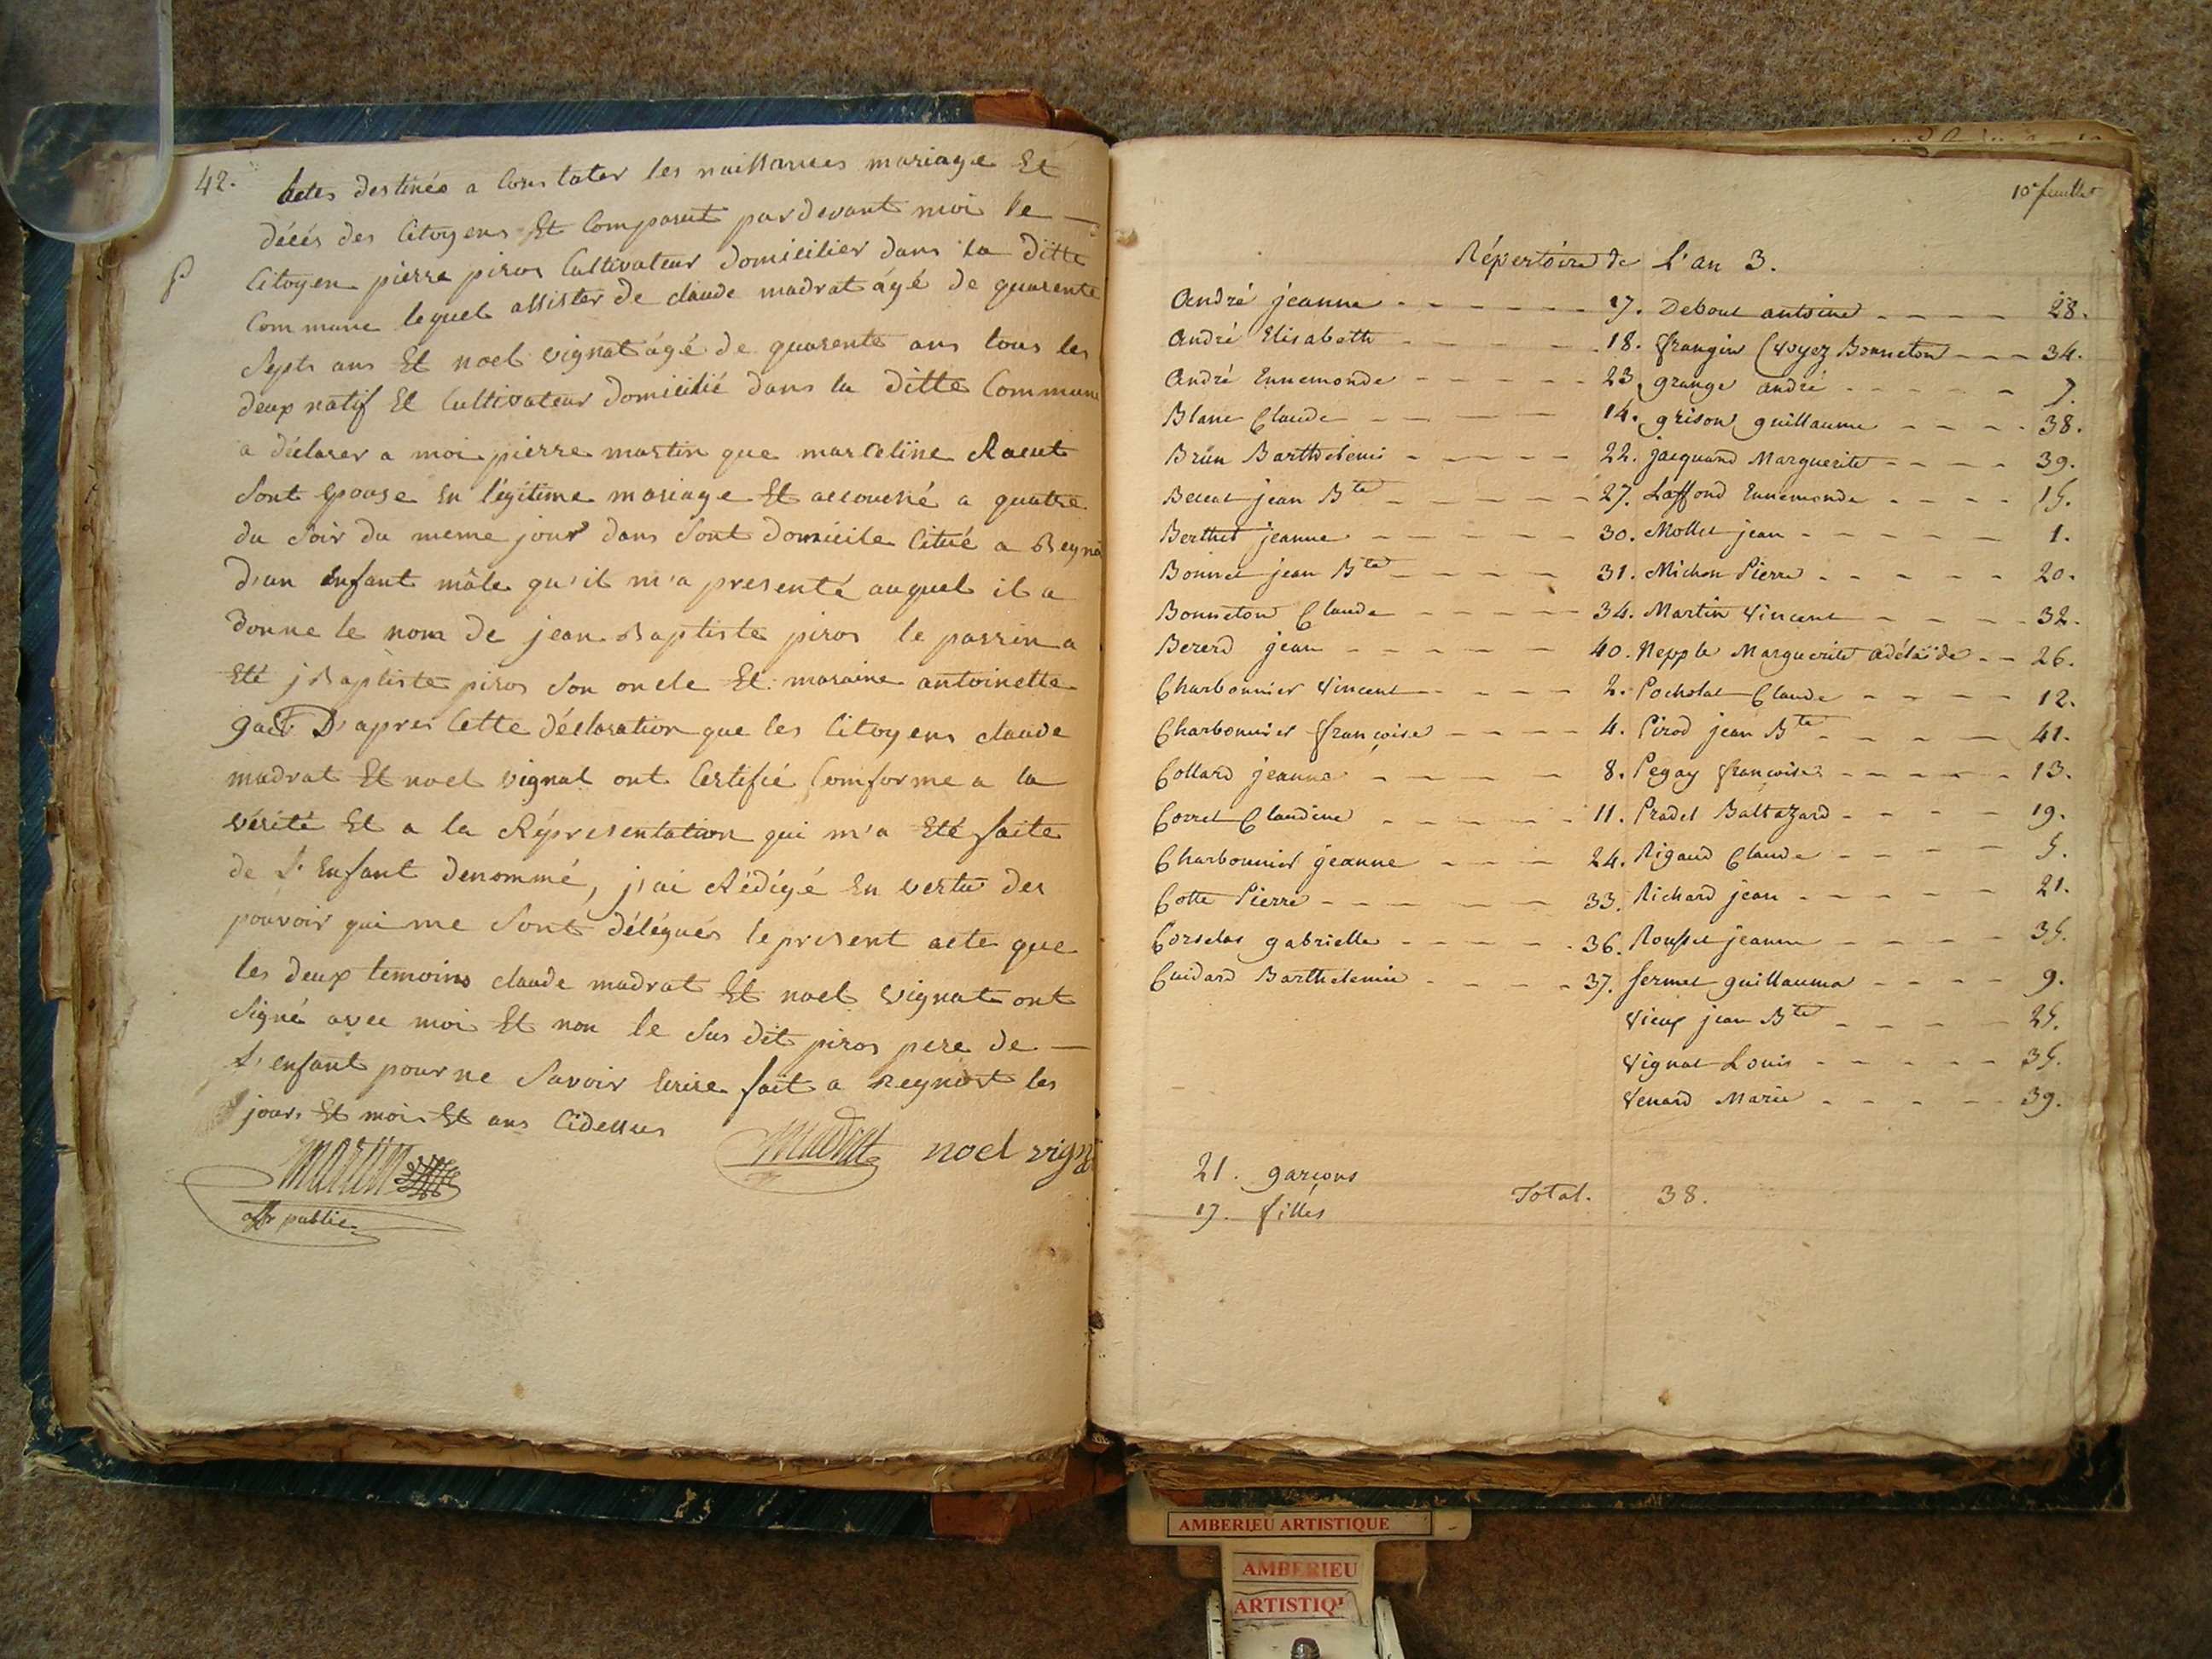 42.
actes destinés a Constater les naissances mariage Et
décés des Citoyens Et Comparut pardevant moi le —
Citoyen pierre piros Cultivateur domicilier dans la ditte
Commune lequel assister de claude madrat âgé de quarente
Septs ans Et noel vignat âgé de quarente ans tous les
deux natif Et Cultivateur domicilié dans la ditte Commune
a déclarer a moi pierre martin que marceline
Sont Epouse En légitime mariage Et accouché a quatre
du Soir du meme jour dans Sont domicile Citué a
d'un Enfant mâle qu'il m'a presenté auquel il a
donne le nom de jean Baptiste piros le parrin a
Eté j Baptiste piros Son oncle Et maraine antoinette
D'apres Cette déclaration que les Citoyens claude
madrat Et noel vignat ont Certifié Comforme a la
vérité Et a la Réprésentation qui m'a Eté faite
de L'Enfant denommé, j'ai Rédigé En vertu des
pouvoir qui me Sont délégués le present acte que
les deux temoins claude madrat Et noel vignat ont
Signé avec moi Et non le Sus dit piros pere de —
L'enfant pour ne Savoir Ecrire fait a Reynost les
jours Et mois Et ans Cidessus
Madrat noel vign
martin
offr public
10e feuillet
Répertoire de L'an 3.
André jeanne - - - - - - 17.
André Elisabeth - - - - - 18.
André Ennemonde - - - - - 23
Blanc Claude - - - - - 14.
Brün Barthelemi - - - - - 22.
jean Bte - - - - - 27.
Berthet jeanne - - - - - 30.
Bonnet jean Bte - - - - - 31.
Bonneton Claude - - - - - 34.
Bererd jean - - - - - 40.
Charbonnier Vincent - - - - 2.
Charbonnier françoise - - - - 4.
Collard jeanne - - - - - 8.
Corret Claudine - - - - - 11.
Charbonnier jeanne - - - 24.
Cotte Pierre - - - - - - 33.
gabrielle - - - - - 36.
Cuidard Barthelemie - - - - 37.
Debout antoine - - - - 28.
frangin (Voyez Bonneton - - - 34.
grange andré - - - - - 7.
grison guillaume - - - - 38.
jacquand Marguerite - - - - 39.
Laffond Ennemonde - - - - 15.
Mollet jean - - - - - - 1.
Michon Pierre - - - - - 20.
Martin Vincent - - - - 32.
Nepple Marguerite adélaïde - - 26.
Pocholat Claude - - - - 12.
Pirod jean Bte - - - - 41.
Pegay françoise - - - - - 13.
Pradel Baltazard - - - - 19.
Rigaud Claude - - - - 5.
Richard jean - - - - - 21.
Rousset jeanne - - - - 35.
fermet guillaume - - - - 9.
Vieux jean Bte - - - - 25.
Vignat Louis - - - - - 35.
Venard Marie - - - - - 39.
21. garçons
17. filles
Total. 38.
AMBERIEU ARTISTIQUE
AMBERIEU
ARTISTIQ